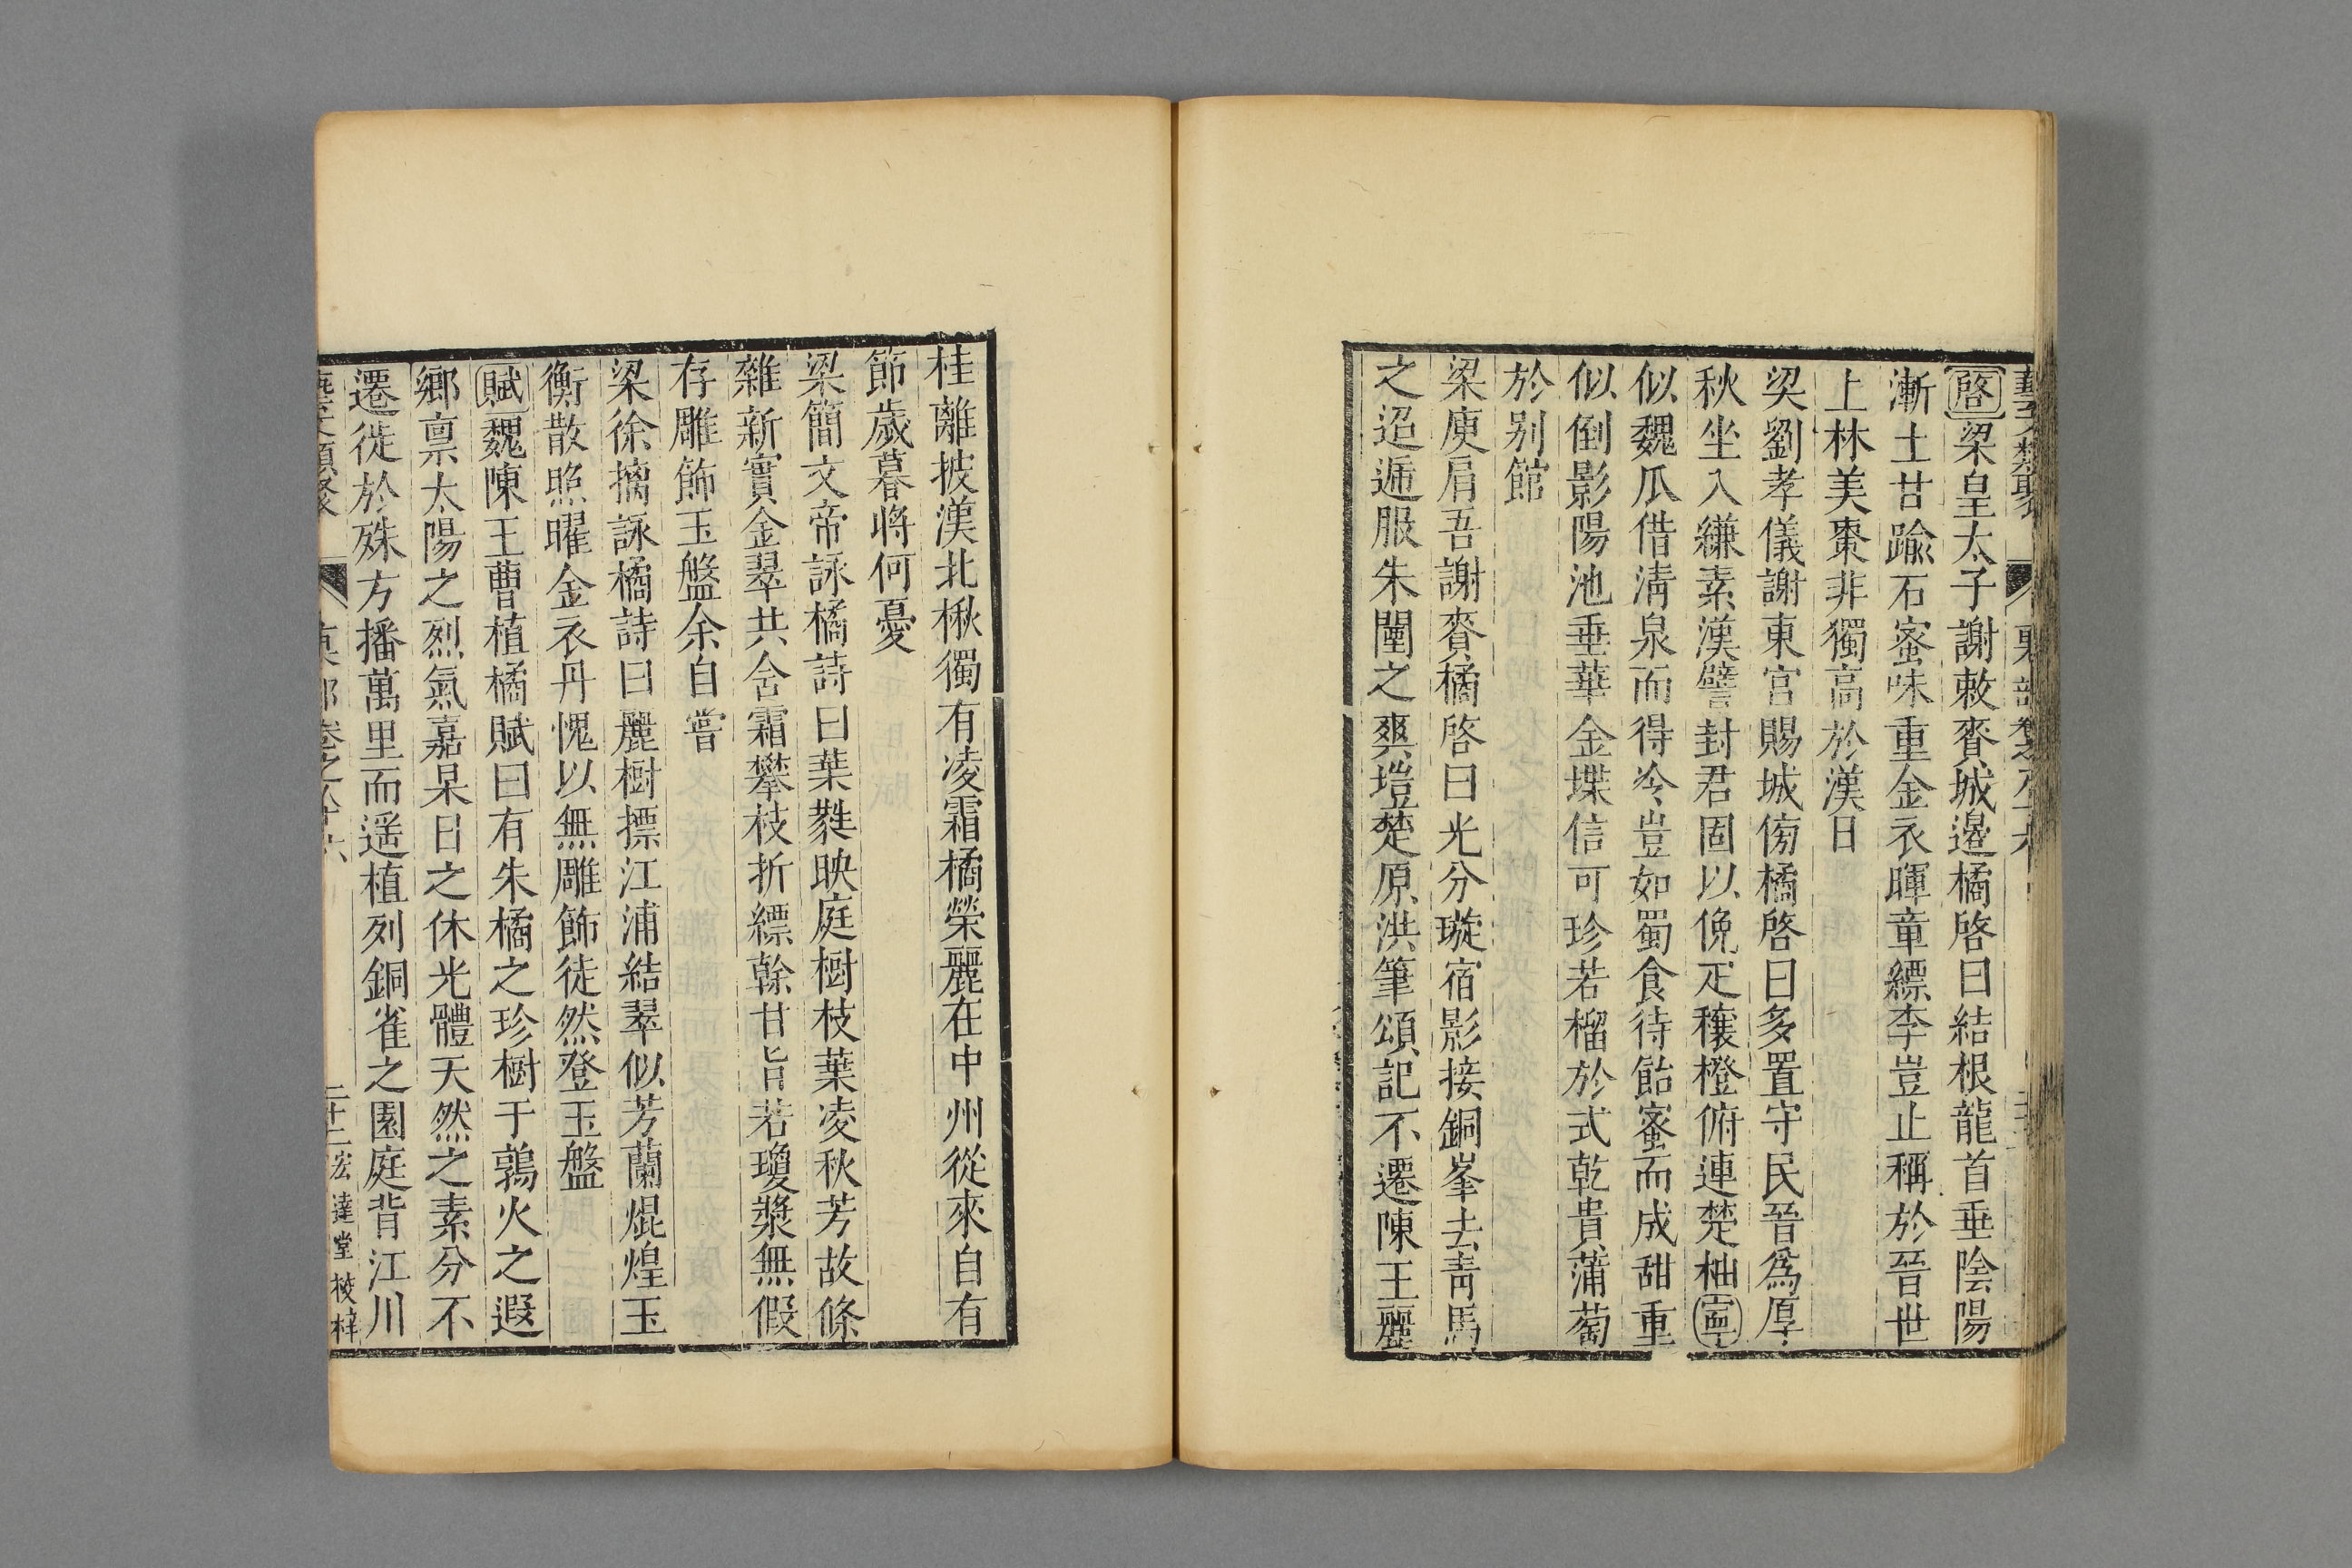 啓梁皇太子謝敕賚城邊橘啓曰結根龍首垂陰陽
漸土甘踰石蜜味重金衣暉章縹李豈止稱於晉世
上林美棗非獨高於漢日
梁劉孝儀謝東宮賜城傍橘啓曰多置守民晉爲厚
秋坐入縑素漢譬封君固以俛疋穰橙俯連楚柚寧
似魏瓜借淸泉而得冷豈如蜀食待飴蜜而成甜重
似倒影陽池垂華金堞信可珍若榴於式乾貴蒲萄
於别館
梁庾肩吾謝賚橘啓曰光分璇宿影接銅峯去青馬
之迢遞服朱闉之爽塏楚原洪筆頌記不遷陳王麗
桂離披漢北楸獨有凌霜橘榮麗在中州從來自有
節歲暮將何憂
梁簡文帝詠橘詩曰葉蕤映庭樹枝葉凌秋芳故條
雜新實金翠共含霜攀枝折縹榦甘旨若瓊漿無假
存雕飾玉盤余自嘗
梁徐摛詠橘詩曰麗樹摽江浦結翠似芳蘭焜煌玉
衡散照曜金衣丹愧以無雕飾徒然登玉盤
賦魏陳王曹植橘賦曰有朱橘之珍樹于鶉火之遐
鄉禀太陽之烈氣嘉杲日之休光體天然之素分不
遷徙於殊方播萬里而遥植列銅雀之園庭背江川
二十二 宏達堂校梓